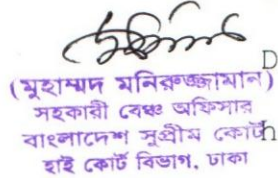 D
(মুহাম্মদ মনিরুজ্জামান)
সহকারী বেঞ্চ অফিসার
বাংলাদেশ সুপ্রীম কোর্ট
h
হাই কোর্ট বিভাগ, ঢাকা